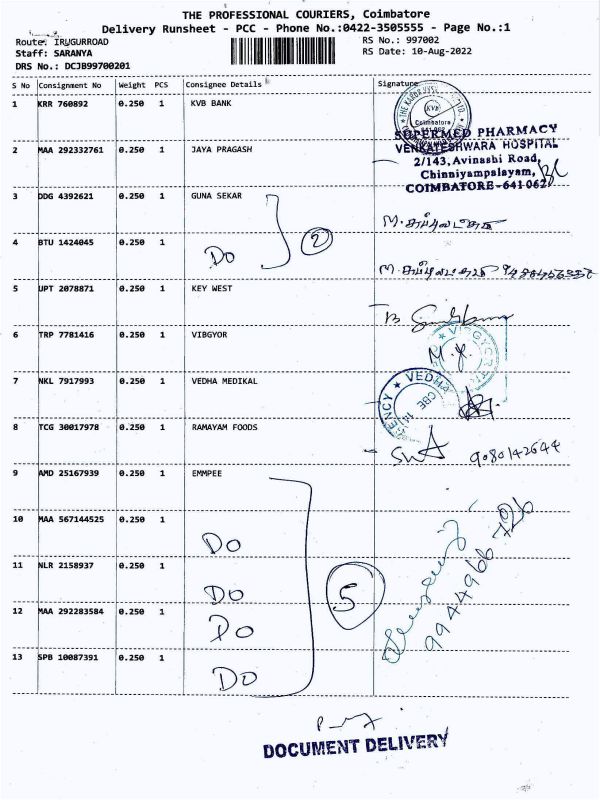 THE PROFESSIONAL COURIERS, Coimbatore
Delivery Runsheet - PCC - Phone No.:0422-3505555 - Page No.:1
Route: IRUGURROAD
RS No.: 997002
Staff: SARANYA
RS Date: 10-Aug-2022
DRS No.: DCJB99700201
S No Consignment No Weight PCS Consignee Details Signature
1 KRR 760892 0.250 1 KVB BANK
KVB
Coimbatore
641 062
SUPERMED PHARMACY
2 MAA 292332761 0.250 1 JAYA PRAGASH
VENKATESHWARA HOSPITAL
2/143, Avinashi Road,
Chinniyampalayam,
COIMBATORE - 641 062
3 DDG 4392621 0.250 1 GUNA SEKAR
4 BTU 1424045 0.250 1
Do 2
5 UPT 2078871 0.250 1 KEY WEST
6 TRP 7781416 0.250 1 VIBGYOR
VIBGYOR
7 NKL 7917993 0.250 1 VEDHA MEDIKAL
VEDHA AGENCY CBE 14
8 TCG 30017978 0.250 1 RAMAYAM FOODS
9080142644
9 AMD 25167939 0.250 1 EMMPEE
10 MAA 567144525 0.250 1
Do
11 NLR 2158937 0.250 1
Do 5
12 MAA 292283584 0.250 1
Do
9944966 726
13 SPB 10087391 0.250 1
Do
DOCUMENT DELIVERY